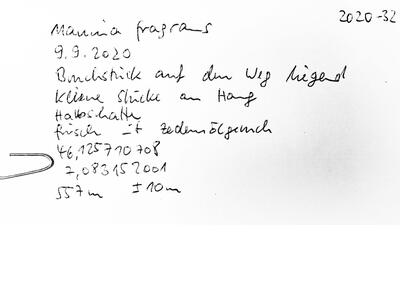 2020-32
Mannia fragrans
9.9.2020
Bruchstück auf dem Weg liegend
kleine Stücke am Hang
Halbschatten
frisch mit Zedernölgeruch
46,125710708
7,083152001
557m ±10m